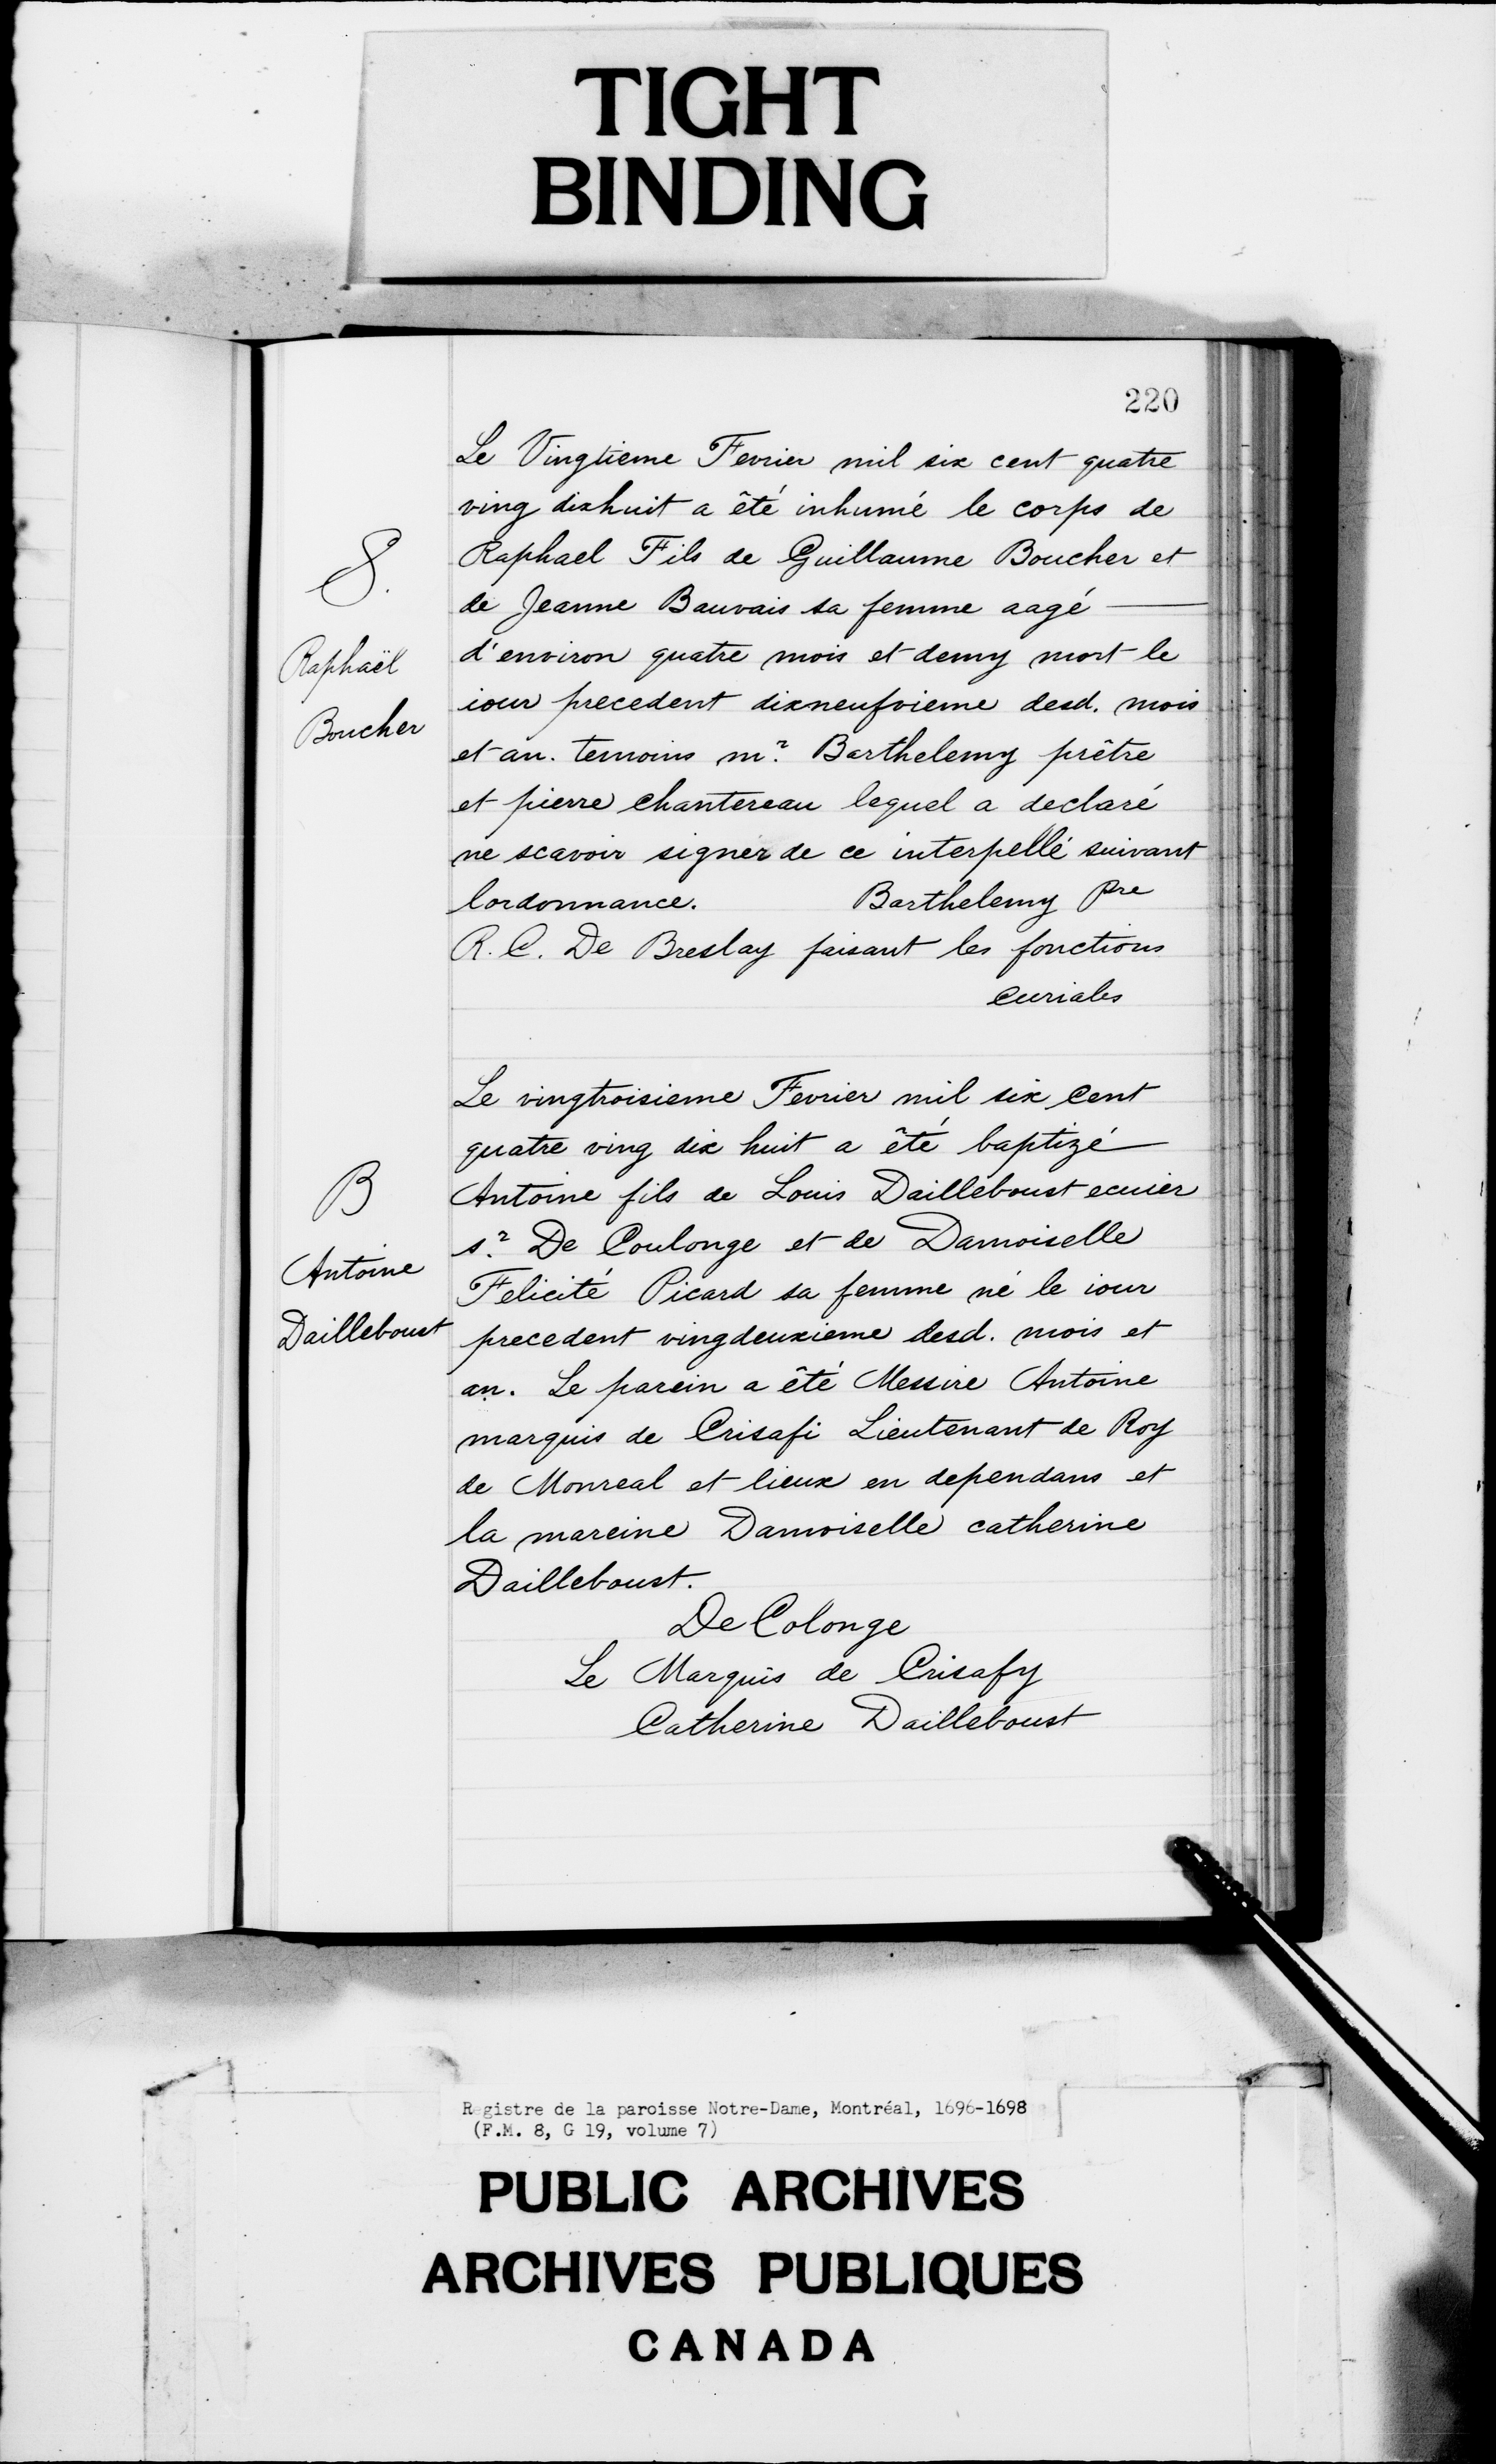 TIGHT
BINDING
220
Le Vingtieme Fevrier mil six cent quatre
ving dixhuit a êté inhumé le corps de
Raphael Fils de Guillaume Boucher et
de Jeanne Bauvais sa femme aagé —
d'environ quatre mois et demy mort le
iour precedent dixneufvieme desd. mois
et an. temoins mr. Barthelemy prêtre
et pierre Chantereau lequel a declaré
ne scavoir signer de ce interpellé suivant
lordonnance. Barthelemy Pre
R. C. De Breslay faisant les fonctions
Curiales
S.
Raphaël
Boucher
Le vingtroisieme Fevrier mil six Cent
quatre ving dix huit a êté baptizé
Antoine fils de Louis Dailleboust ecuier
sr. De Coulonge et de Damoiselle
Felicité Picard sa femme né le iour
precedent vingdeuxieme desd. mois et
an. Le parein a êté Messire Antoine
marquis de Crisafi Lieutenant de Roy
de Monreal et lieux en dependans et
la mareine Damoiselle catherine
Dailleboust.
De Colonge
Le Marquis de Crisafy
Catherine Dailleboust
B
Antoine
Dailleboust
R gistre de la paroisse Notre-Dame, Montréal, 1696-1698
(F.M. 8, G 19, volume 7)
PUBLIC ARCHIVES
ARCHIVES PUBLIQUES
CANADA